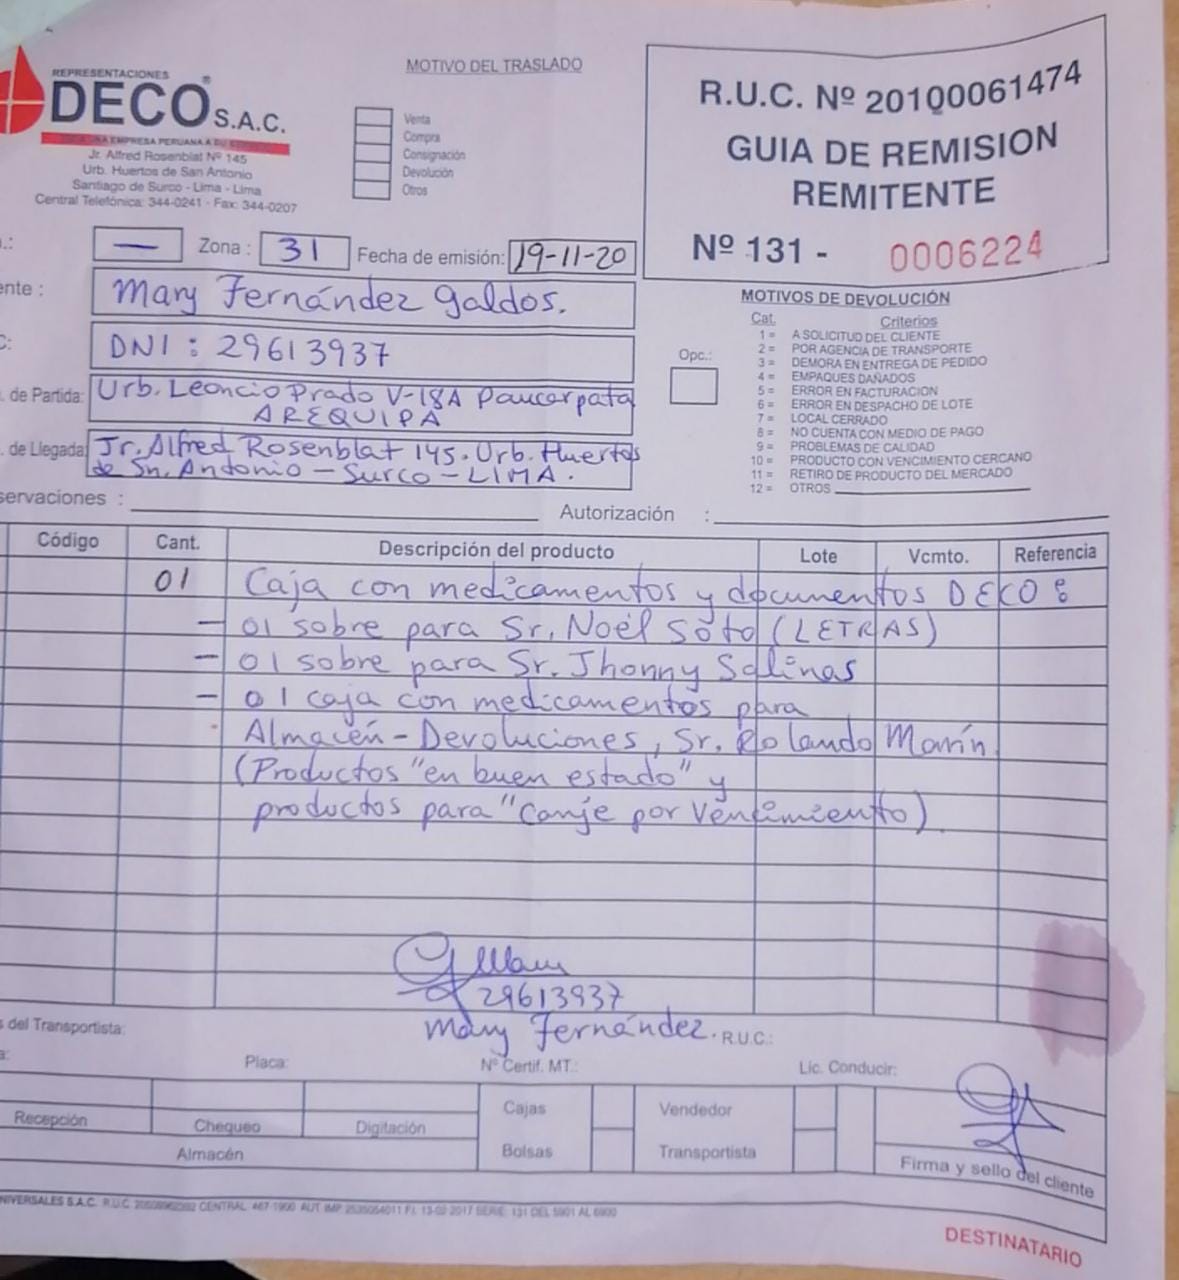 REPRESENTACIONES
DECO S.A.C.
UNA EMPRESA PERUANA A SU
Jr. Alfred Rosenblat Nº 145
Urb. Huertos de San Antonio
Santiago de Surco - Lima - Lima
Central Telefónica: 344-0241 - Fax: 344-0207
MOTIVO DEL TRASLADO
Venta
Compra
Consignación
Devolución
Otros
R.U.C. Nº 20100061474
GUIA DE REMISION
REMITENTE
Nº 131 - 0006224
.: — Zona : 31 Fecha de emisión: 19-11-20
ente : Mary Fernández Galdos.
C: DNI : 29613937
. de Partida: Urb. Leoncio Prado V-18A Paucarpata
AREQUIPA
. de Llegada: Jr. Alfred Rosenblat 145. Urb. Huertos
de Sn. Antonio - Surco - LIMA.
MOTIVOS DE DEVOLUCIÓN
Cat. Criterios
Opc.:
1 = A SOLICITUD DEL CLIENTE
2 = POR AGENCIA DE TRANSPORTE
3 = DEMORA EN ENTREGA DE PEDIDO
4 = EMPAQUES DAÑADOS
5 = ERROR EN FACTURACION
6 = ERROR EN DESPACHO DE LOTE
7 = LOCAL CERRADO
8 = NO CUENTA CON MEDIO DE PAGO
9 = PROBLEMAS DE CALIDAD
10 = PRODUCTO CON VENCIMIENTO CERCANO
11 = RETIRO DE PRODUCTO DEL MERCADO
12 = OTROS
servaciones : Autorización :
Código Cant. Descripción del producto Lote Vcmto. Referencia
01 Caja con medicamentos y documentos DECO :
- 01 sobre para Sr. Noel Soto (LETRAS)
- 01 sobre para Sr. Jhonny Salinas
- 01 caja con medicamentos para
Almacén - Devoluciones, Sr. Rolando Marín.
(Productos "en buen estado" y
productos para "Canje por Vencimiento)
29613937
Mary Fernández.
s del Transportista: R.U.C.:
a: Placa: Nº Certif. MT.: Lic. Conducir:
Cajas Vendedor
Recepción Chequeo Digitación
Bolsas Transportista
Almacén
Firma y sello del cliente
NIVERSALES S.A.C. R.U.C. CENTRAL 467-1900 AUT IMP F.I. 13-02-2017 SERIE: 131 DEL 5901 AL 6900
DESTINATARIO